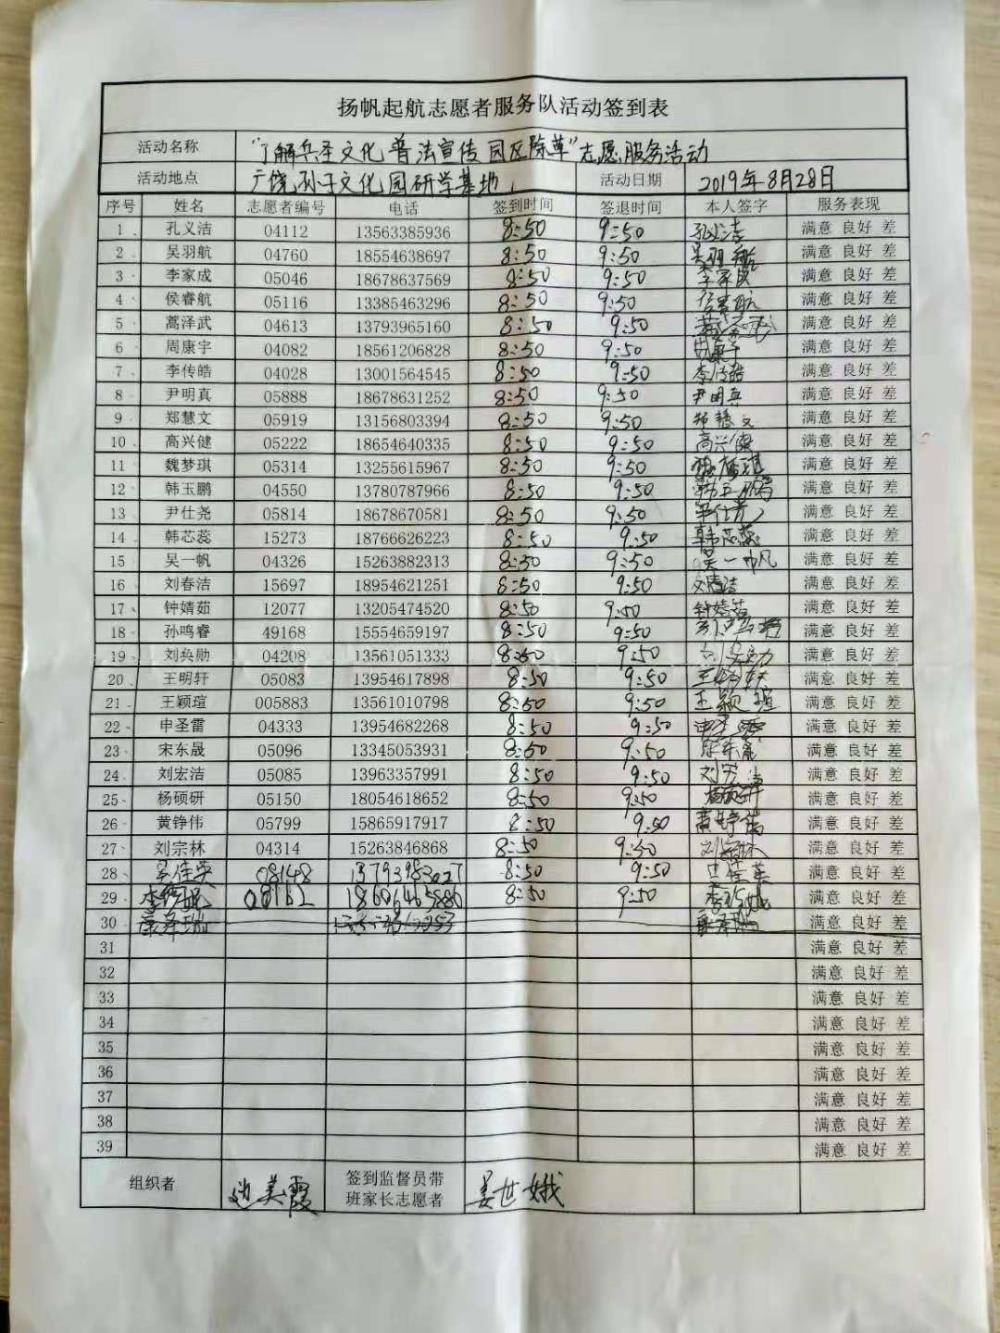 扬帆起航志愿者服务队活动签到表
活动名称 "了解兵圣文化 普法宣传 园区除草"志愿服务活动
活动地点 广饶孙子文化园研学基地 活动日期 2019年8月28日
序号 姓名 志愿者编号 电话 签到时间 签退时间 本人签字 服务表现
1 孔义洁 04112 13563385936 8:50 9:50 孔义洁 满意 良好 差
2 吴羽航 04760 18554638697 8:50 9:50 吴羽航 满意 良好 差
3 李家成 05046 18678637569 8:50 9:50 李家成 满意 良好 差
4 侯睿航 05116 13385463296 8:50 9:50 侯睿航 满意 良好 差
5 蒿泽武 04613 13793965160 8:50 9:50 满意 良好 差
6 周康宇 04082 18561206828 8:50 9:50 周康宇 满意 良好 差
7 李传皓 04028 13001564545 8:50 9:50 李传皓 满意 良好 差
8 尹明真 05888 18678631252 8:50 9:50 尹明真 满意 良好 差
9 郑慧文 05919 13156803394 8:50 9:50 郑慧文 满意 良好 差
10 高兴健 05222 18654640335 8:50 9:50 高兴健 满意 良好 差
11 魏梦琪 05314 13255615967 8:50 9:50 魏梦琪 满意 良好 差
12 韩玉鹏 04550 13780787966 8:50 9:50 韩玉鹏 满意 良好 差
13 尹仕尧 05814 18678670581 8:50 9:50 尹仕尧 满意 良好 差
14 韩芯蕊 15273 18766626223 8:50 9:50 韩芯蕊 满意 良好 差
15 吴一帆 04326 15263882313 8:50 9:50 吴一帆 满意 良好 差
16 刘春洁 15697 18954621251 8:50 9:50 刘春洁 满意 良好 差
17 钟婧茹 12077 13205474520 8:50 9:50 钟婧茹 满意 良好 差
18 孙鸣睿 49168 15554659197 8:50 9:50 孙鸣睿 满意 良好 差
19 刘奂勋 04208 13561051333 8:50 9:50 满意 良好 差
20 王明轩 05083 13954617898 8:50 9:50 王明轩 满意 良好 差
21 王颖瑄 005883 13561010798 8:50 9:50 王颖瑄 满意 良好 差
22 申圣雷 04333 13954682268 8:50 9:50 申圣雷 满意 良好 差
23 宋东晟 05096 13345053931 8:50 9:50 宋东晟 满意 良好 差
24 刘宏洁 05085 13963357991 8:50 9:50 刘宏洁 满意 良好 差
25 杨硕研 05150 18054618652 8:50 9:50 杨硕研 满意 良好 差
26 黄铮伟 05799 15865917917 8:50 9:50 黄铮伟 满意 良好 差
27 刘宗林 04314 15263846868 8:50 9:50 刘宗林 满意 良好 差
28 08148 8:50 9:50 满意 良好 差
29 08162 8:50 9:50 满意 良好 差
30 满意 良好 差
31 满意 良好 差
32 满意 良好 差
33 满意 良好 差
34 满意 良好 差
35 满意 良好 差
36 满意 良好 差
37 满意 良好 差
38 满意 良好 差
39 满意 良好 差
组织者 边美霞 签到监督员带
班家长志愿者 姜世娥